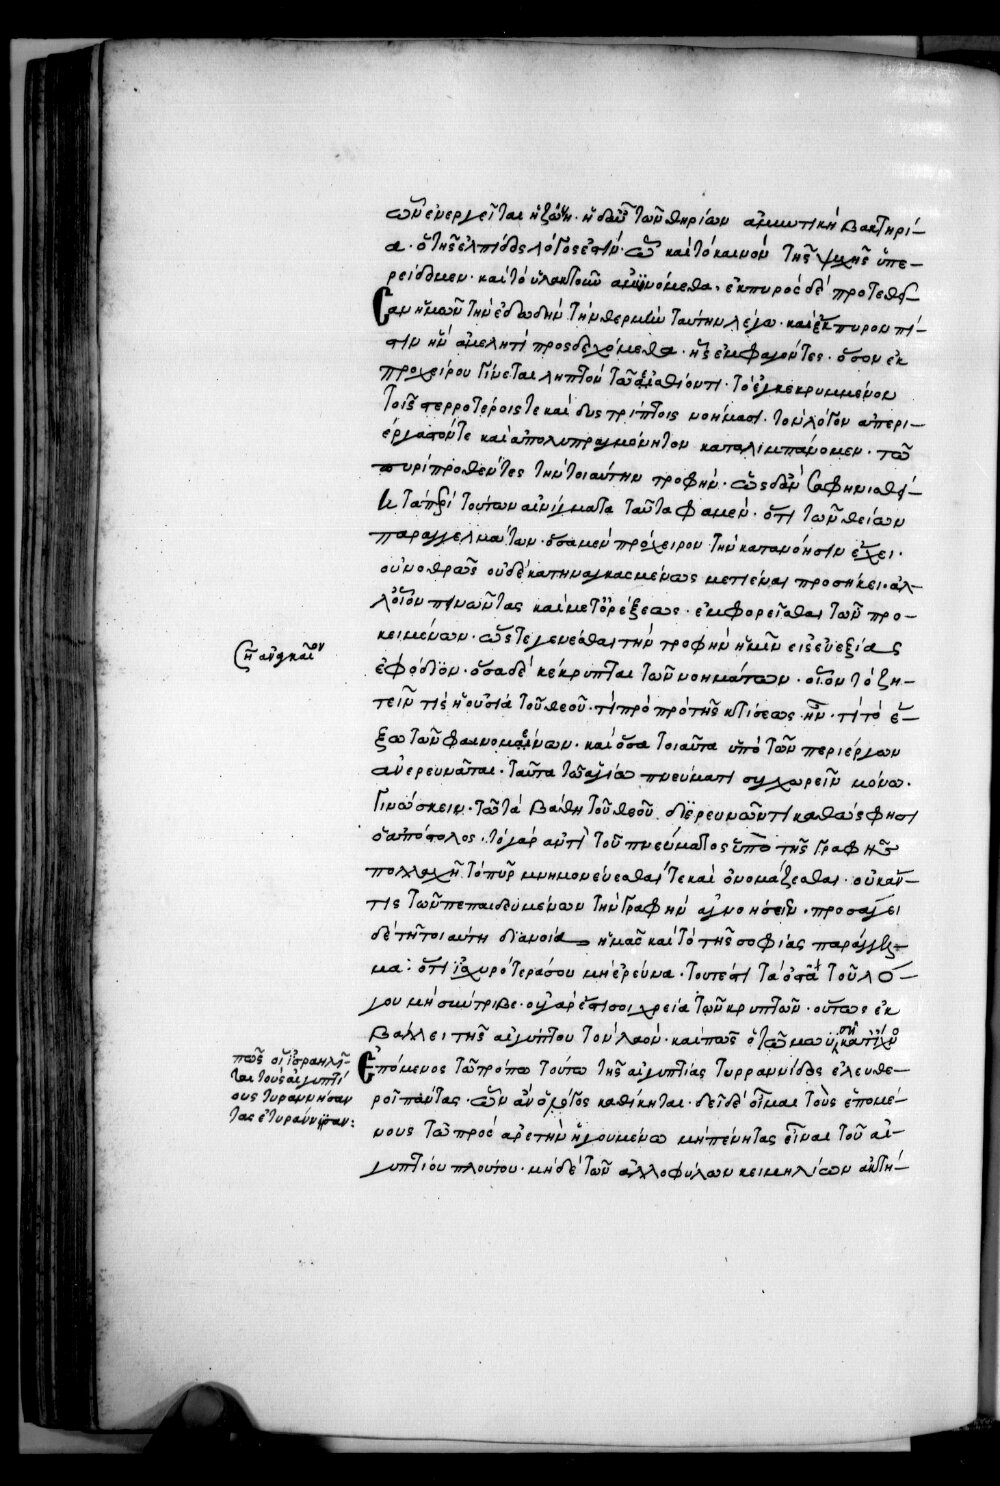 ὧν ἐνεργεῖται ἡ ζώνη· ἡ δὲ τῶν θηρίων ἀμυντικὴ βακτηρί-
α· ὁ τῆς ἐλπίδος λόγος ἐστίν· ὧ καὶ τὸ κάμνον τῆς ψυχῆς ὑπε-
ρείδομεν· καὶ τὸ ὑλακτοῦν ἀμυνόμεθα· ἐκ πυρὸς δὲ προτεθεῖ-
σαν ἡμῶν τὴν ἐδωδὴν τὴν θερμὴν ταύτην λέγω· καὶ ἔκπυρον πί-
στιν ἣν ἀμελητὶ προσδεχόμεθα· ἧς ἐμφαγόντες· ὅσον ἐκ
προχείρου γίνεται ληπτὸν τῶ ἐσθίοντι· τὸ ἐγκεκρυμμένον
τοῖς στερροτέροις τε καὶ δυστρίπτοις νοήμασι· τὸν λόγον ἀπερι-
έργαστόν τε καὶ ἀπολυπραγμόνητον καταλιμπάνομεν· τῶ
πυρὶ προθέντες τὴν τοιαύτην τροφήν· ὡς δ' ἂν σαφηνισθεί-
η τὰ περὶ τούτων αἰνίγματα ταῦτα φαμέν· ὅτι τῶν θείων
παραγγελμάτων· ὅσα μὲν πρόχειρον τὴν κατανόησιν ἔχει·
οὐ νοθρῶς οὐδὲ κατηναγκασμένως μετιέναι προσήκει· ἀλ-
λ' οἷον πεινῶντας καὶ μετ' ὀρέξεως· ἐμφορεῖσθαι τῶν προ-
κειμένων· ὥστε γενέσθαι τὴν τροφὴν ἡμῖν εἰς εὐεξίας
ἐφόδιον· ὅσα δὲ κέκρυπται τῶν νοημάτων· οἷον τὸ ζη-
τεῖν τίς ἡ οὐσία τοῦ θεοῦ· τί πρὸ πρὸ τῆς κτίσεως ἦν· τί τὸ ἔ-
ξω τῶν φαινομένων· καὶ ὅσα τοιαῦτα ὑπὸ τῶν περιέργων
ἀνερευνᾶται· ταῦτα τῶ ἁγίω πνεύματι συγχωρεῖν μόνω·
γινώσκειν· τῶ τὰ βάθη τοῦ θεοῦ διερευνῶντι καθώς φησι
ὁ ἀπόστολος· τὸ γὰρ ἀντὶ τοῦ πνεύματος ὑπὸ τῆς γραφῆς
πολλαχῆ τὸ πῦρ μνημονεύεσθαί τε καὶ ὀνομάζεσθαι· οὐκ ἄν
τις τῶν πεπαιδευμένων τὴν γραφὴν ἀγνοήσειεν· προσάγει
δὲ τῆ τοιαύτη διανοία ἡμᾶς καὶ τὸ τῆς σοφίας παράγγελ-
μα: ὅτι ἰσχυρότερά σου μὴ ἐρεύνα· τουτέστι τὰ ὀστᾶ τοῦ λό-
γου μὴ σύντριβε· οὐ γάρ ἐστί σοι χρεία τῶν κρυπτῶν· οὕτως ἐκ-
βάλλει τῆς αἰγύπτου τὸν λαόν· καὶ πᾶς ὁ τῶ μωϋσῆ κατ' ἴχνος
ἑπόμενος τῶ τρόπω τούτω τῆς αἰγυπτίας τυρραννίδος ἐλευθε-
ροῖ πάντας· ὧν ἂν ὁ λόγος καθίκηται· δεῖ δὲ οἶμαι τοὺς ἑπομέ-
νους τῶ πρὸς ἀρετὴν ἡγουμένω μὴ πένητας εἶναι τοῦ αἰ-
γυπτίου πλούτου· μηδὲ τῶν ἀλλοφύλων κειμηλίων ἀκτή-
ση ἀναγκαῖον
πῶς οἱ ἰσραηλῖ-
ται τοὺς αἰγυπτί
ους τυραννήσαν
τας ἐτυράννησαν: